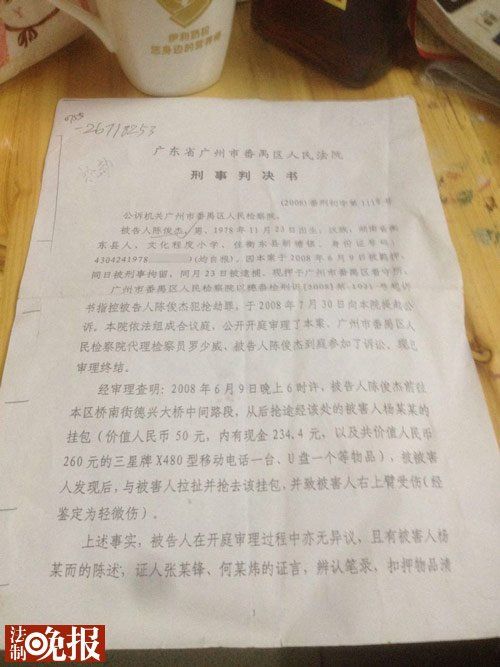 伊利奶粉
您身边的营养师
0755
-26718253
广东省广州市番禺区人民法院
刑事判决书
(2008)番刑初字第111号
公诉机关广州市番禺区人民检察院。
被告人陈俊杰,男,1978年11月23日出生,汉族,湖南省衡
东县人,文化程度小学,住衡东县新塘镇,身份证号码:
4304241978 (均自报)。因本案于2008年6月9日被羁押,
同日被刑事拘留,同月23日被逮捕。现押于广州市番禺区看守所。
广州市番禺区人民检察院以穗番检刑诉[2008] 1031号起诉
书指控被告人陈俊杰犯抢劫罪,于2008年7月30日向本院提起公
诉。本院依法组成合议庭,公开开庭审理了本案。广州市番禺区人
民检察院代理检察员罗少威、被告人陈俊杰到庭参加了诉讼。现已
审理终结。
经审理查明:2008年6月9日晚上6时许,被告人陈俊杰前往
本区桥南街德兴大桥中间路段,从后抢途经该处的被害人杨某某的
挂包(价值人民币50元,内有现金234.4元,以及共价值人民币
260元的三星牌X480型移动电话一台、U盘一个等物品),被被害
人发现后,与被害人拉扯并抢去该挂包,并致被害人右上臂受伤(经
鉴定为轻微伤)。
上述事实,被告人在开庭审理过程中亦无异议,且有被害人杨
某而的陈述;证人张某锋、何某炜的证言,辨认笔录,扣押物品清
1
法制晚报